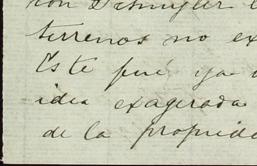 con Schuyler
terrenos no ex
Este fué ya
idea exagerada
de la propieda